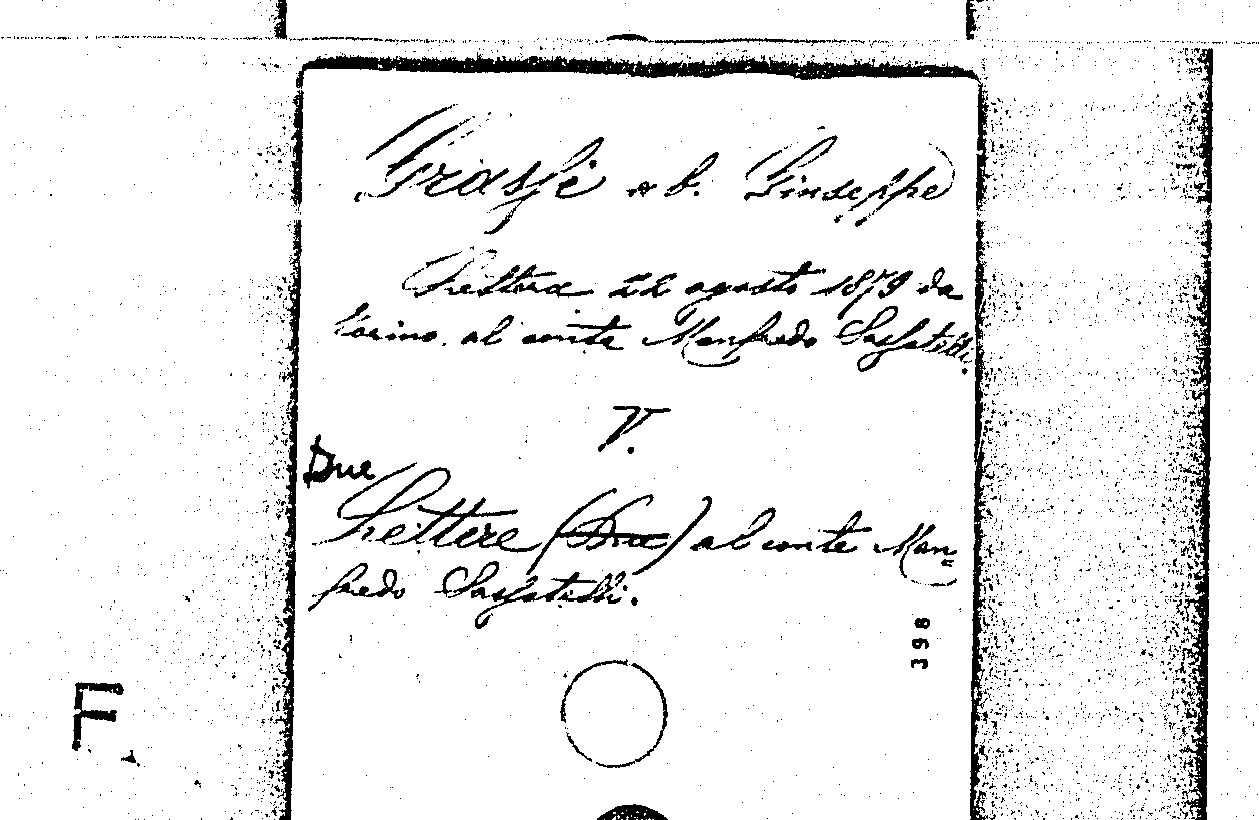 Grassi ab. Giuseppe
Lettera 22 agosto 1879 da
Torino al conte Manfredo Sassatelli.
V.
Due
Lettere (Due) al conte Man=
fredo Sassatelli.
398
F